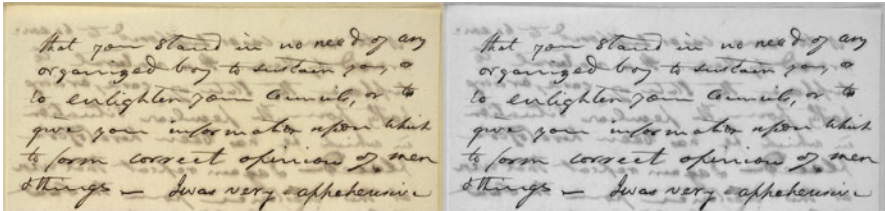 that you stand in no need of any
organized boy to sustain you, or
to enlighten your Councils, or to
give you information upon which
to form correct opinion of men
& things — I was very apprehensive
that you stand in no need of any
organized boy to sustain you, or
to enlighten your Councils, or to
give you information upon which
to form correct opinion of men
& things — I was very apprehensive